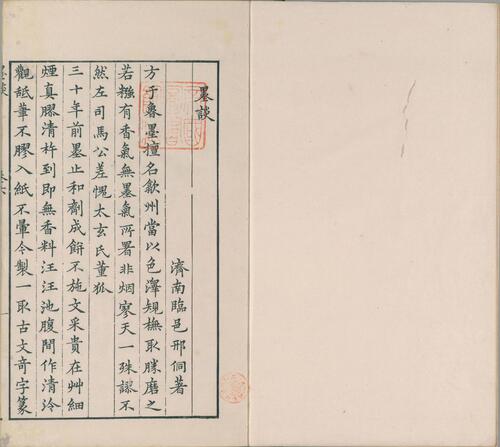 墨談
濟南臨邑邢侗著
方于魯墨擅名歙州當以色澤規橅取勝磨之
若糨有香氣無墨氣所署非烟寥天一殊謬不
然左司馬公差愧太玄氏董狐
三十年前墨止和劑成餅不施文采貴在艸細
煙真膠清杵到即無香料汪汪池腹間作清泠
觀舐筆不膠入紙不暈今製一取古文奇字篆
墨談